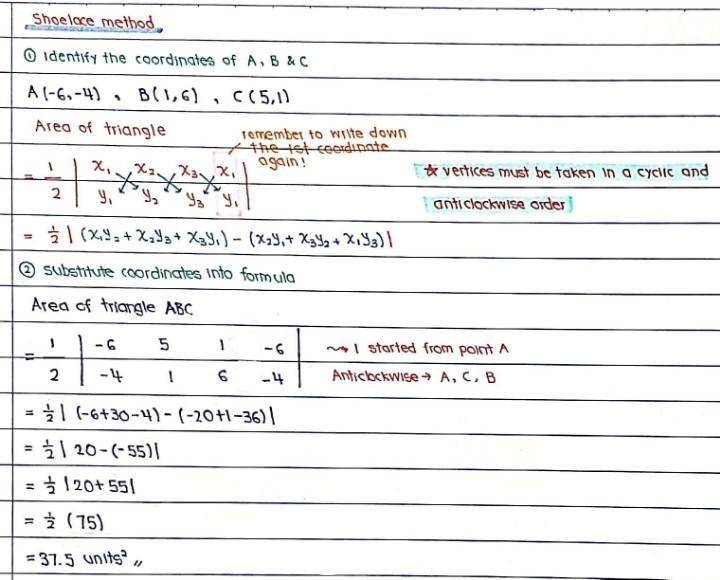 Shoelace method
① Identify the coordinates of A, B & C
A(-6,-4) , B(1,6) , C(5,1)
Area of triangle
remember to write down
the 1st coordinate
again!
= 1/2 | x₁ x₂ x₃ x₁ |
y₁ y₂ y₃ y₁
☆ vertices must be taken in a cyclic and
anticlockwise order
= ½ | (x₁y₂ + x₂y₃ + x₃y₁) - (x₂y₁ + x₃y₂ + x₁y₃) |
② substitute coordinates into formula
Area of triangle ABC
= 1/2 | -6 5 1 -6 |
-4 1 6 -4
I started from point A
Anticlockwise → A, C, B
= ½ | (-6+30-4) - (-20+1-36) |
= ½ | 20-(-55) |
= ½ | 20+55 |
= ½ (75)
= 37.5 units² //